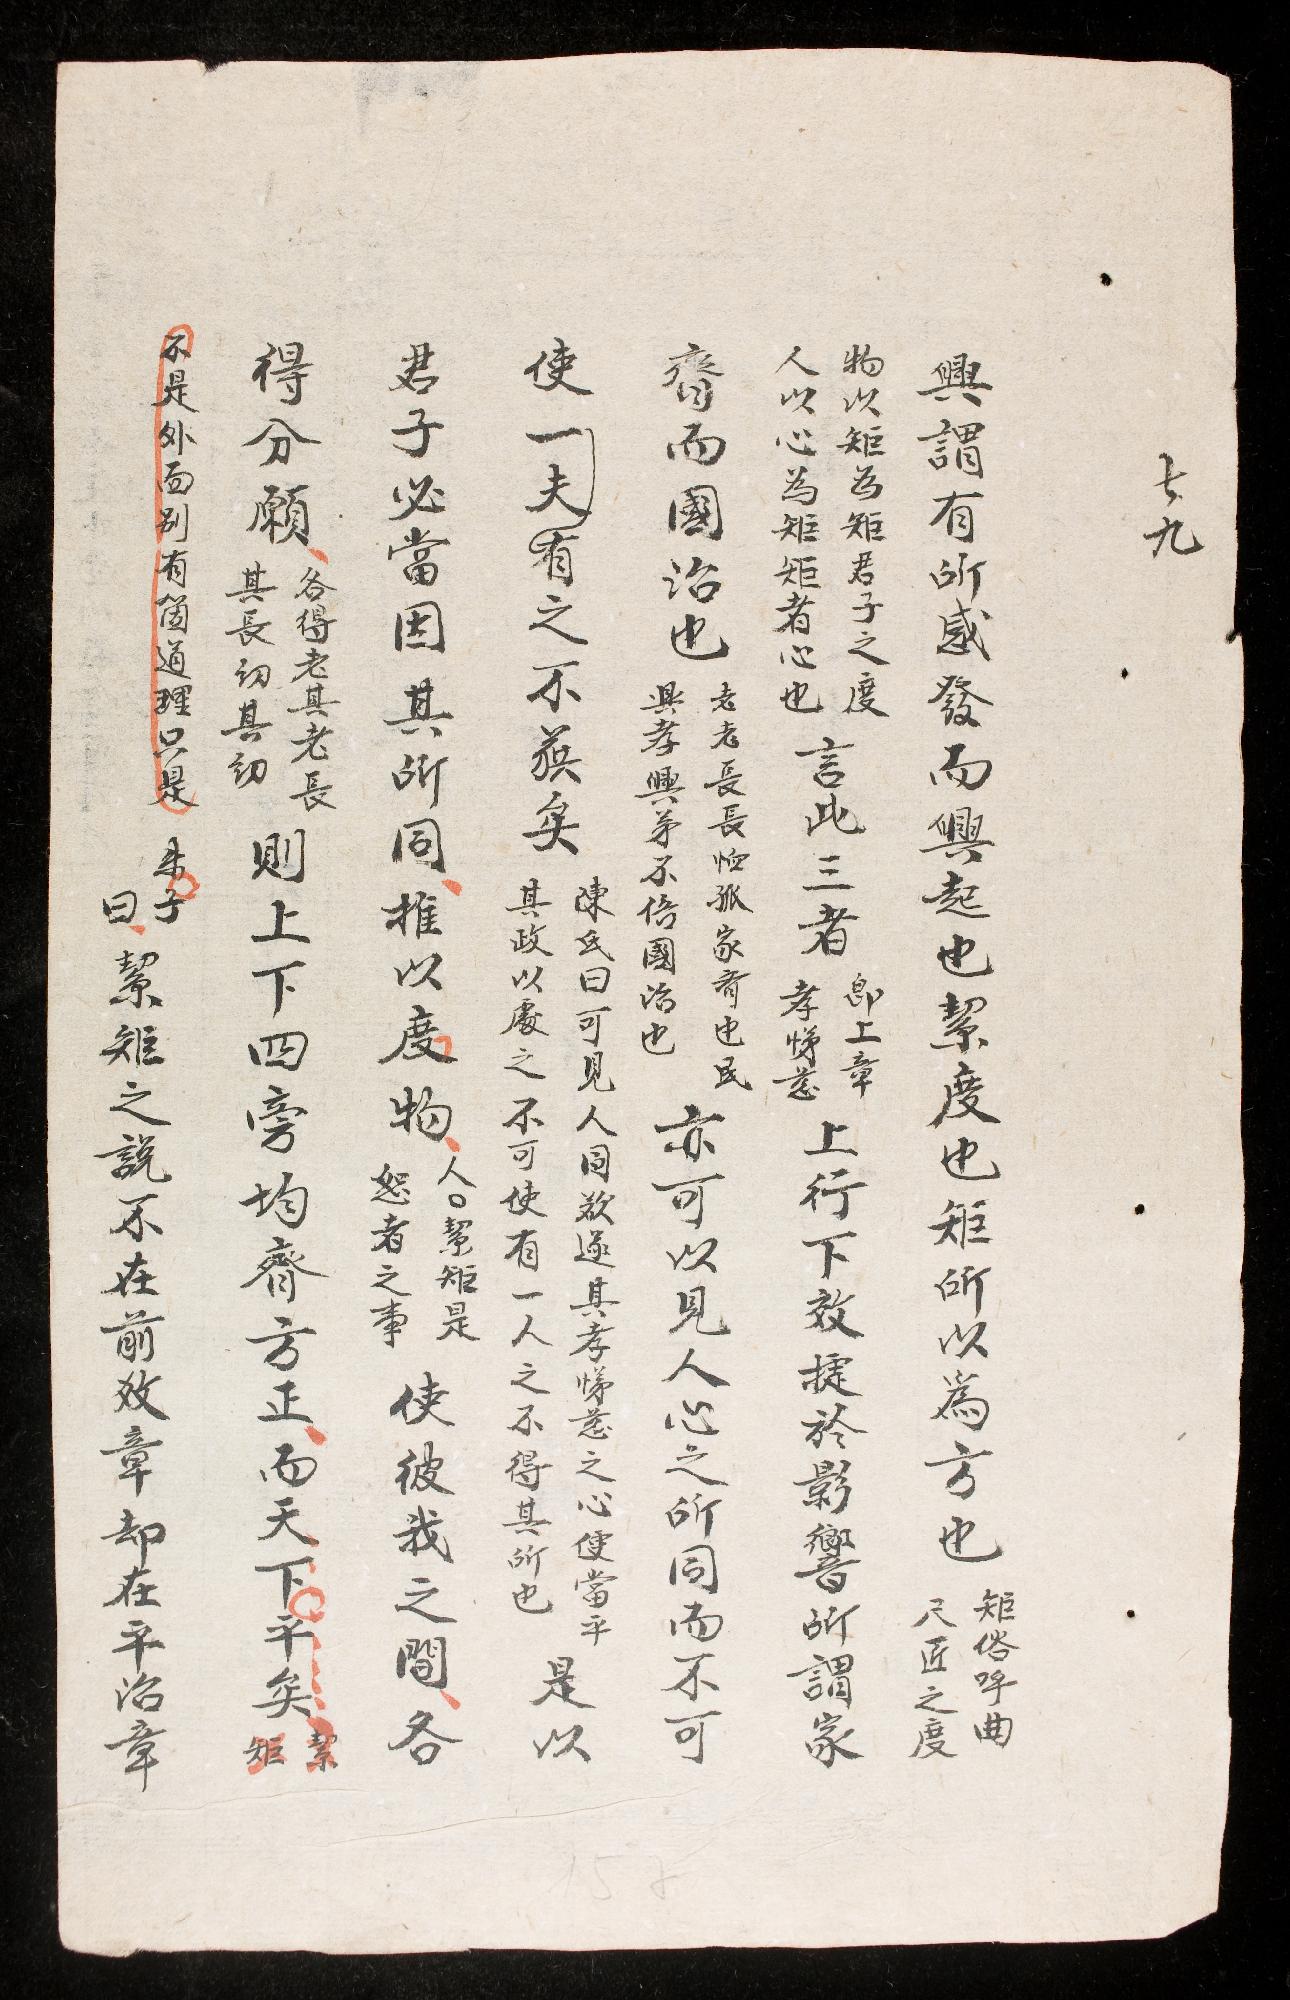 七九
興謂有所感發而興起也絜度也矩所以為方也
矩俗呼曲
尺匠之度
物以矩為矩君子之度
人以心為矩矩者心也
言此三者
即上章
孝悌慈
上行下效捷於影響所謂家
齊而國治也
老老長長恤孤家齊也民
興孝興弟不倍國治也
亦可以見人心之所同而不可
使一夫有之不獲矣
陳氏曰可見人同欲遂其孝悌慈之心便當平
其政以處之不可使有一人之不得其所也
是以
君子必當因其所同推以度物
人○絜矩是
恕者之事
使彼我之間各
得分願
各得老其老長
其長幼其幼
則上下四旁均齊方正而天下平矣
絜
矩
不是外面別有箇道理只是
朱子
曰
絜矩之說不在前效章却在平治章